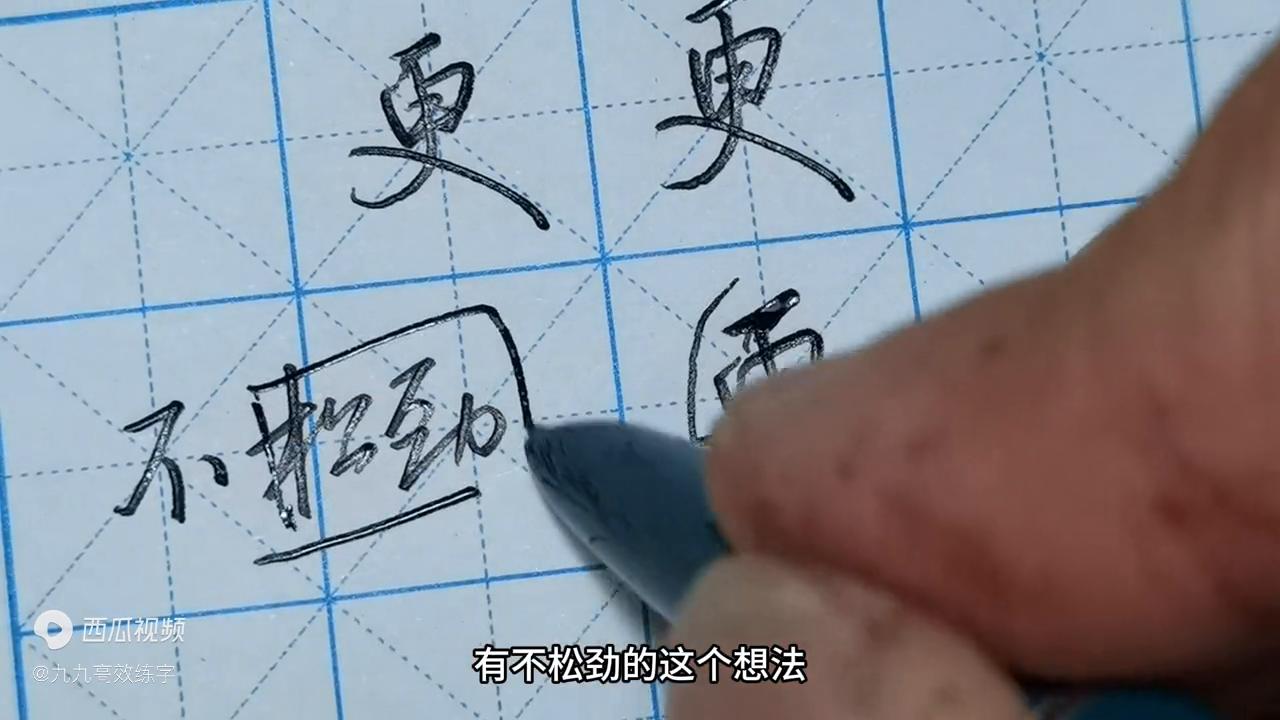 更 更
不松劲
西瓜视频
@九九高效练字
有不松劲的这个想法